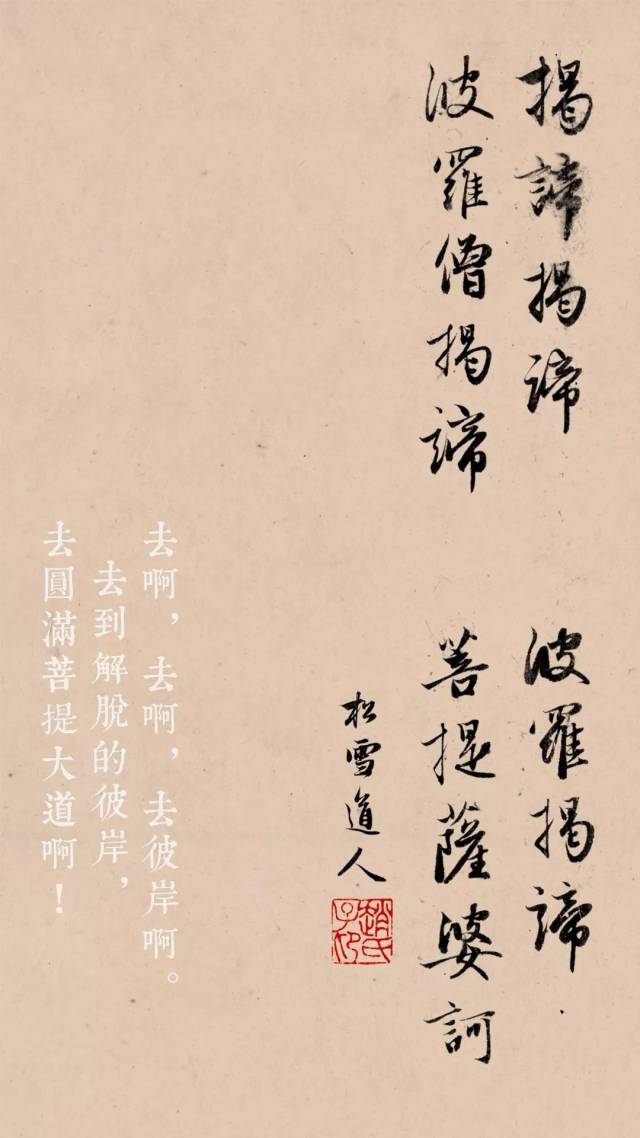 揭諦揭諦 波羅揭諦
波羅僧揭諦 菩提薩婆訶
松雪道人
趙氏子昂
去啊，去啊，去彼岸啊。
去到解脫的彼岸，
去圓滿菩提大道啊！